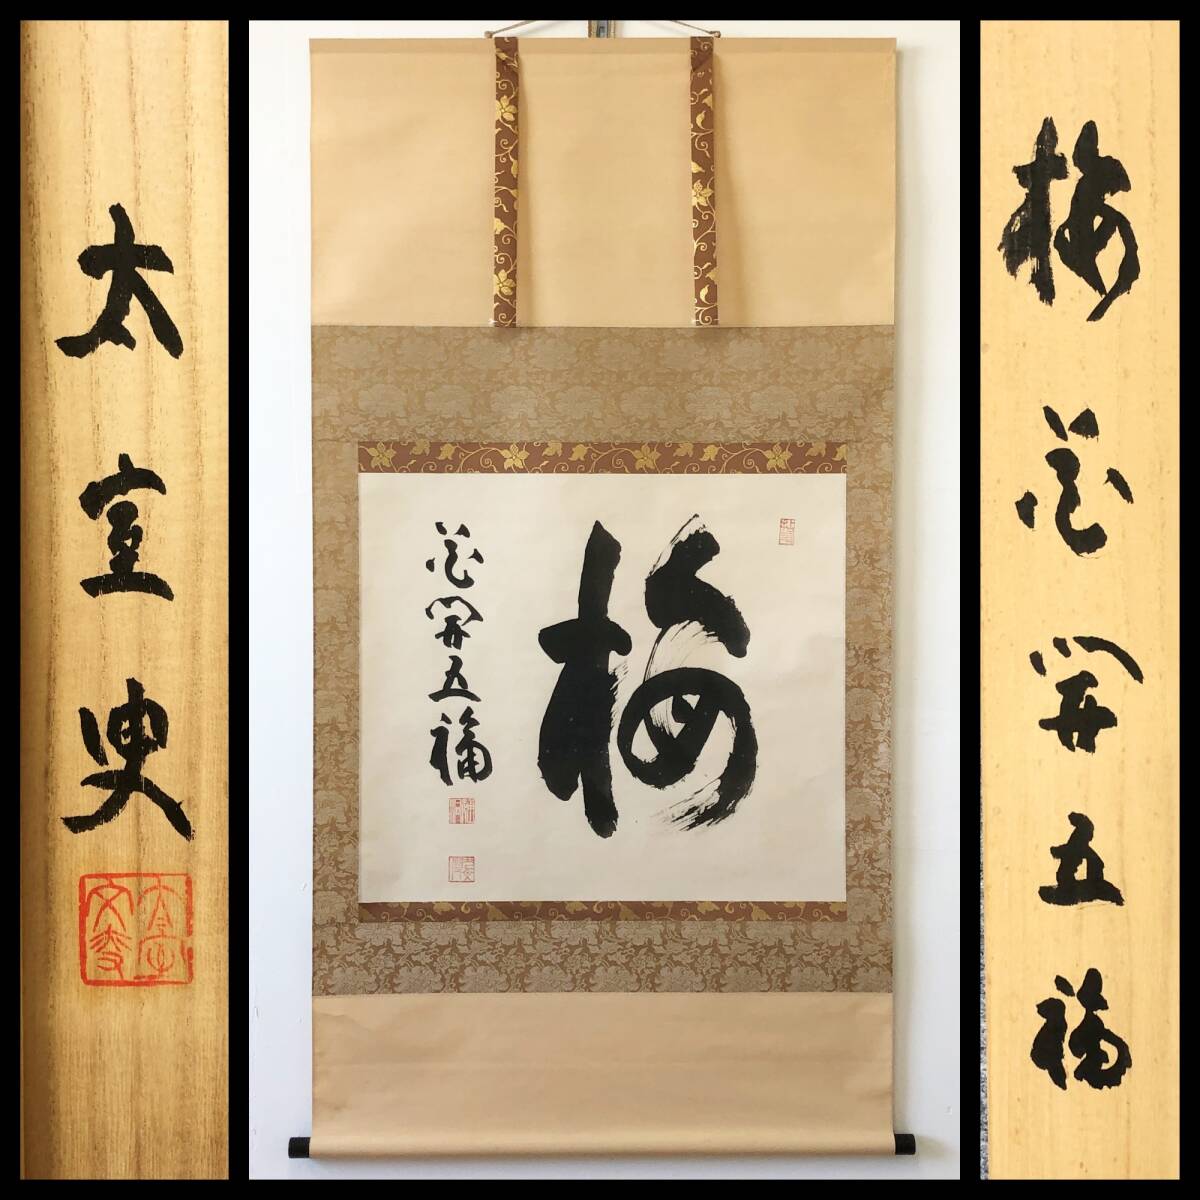 梅花開五福
梅
花開五福
太室叟